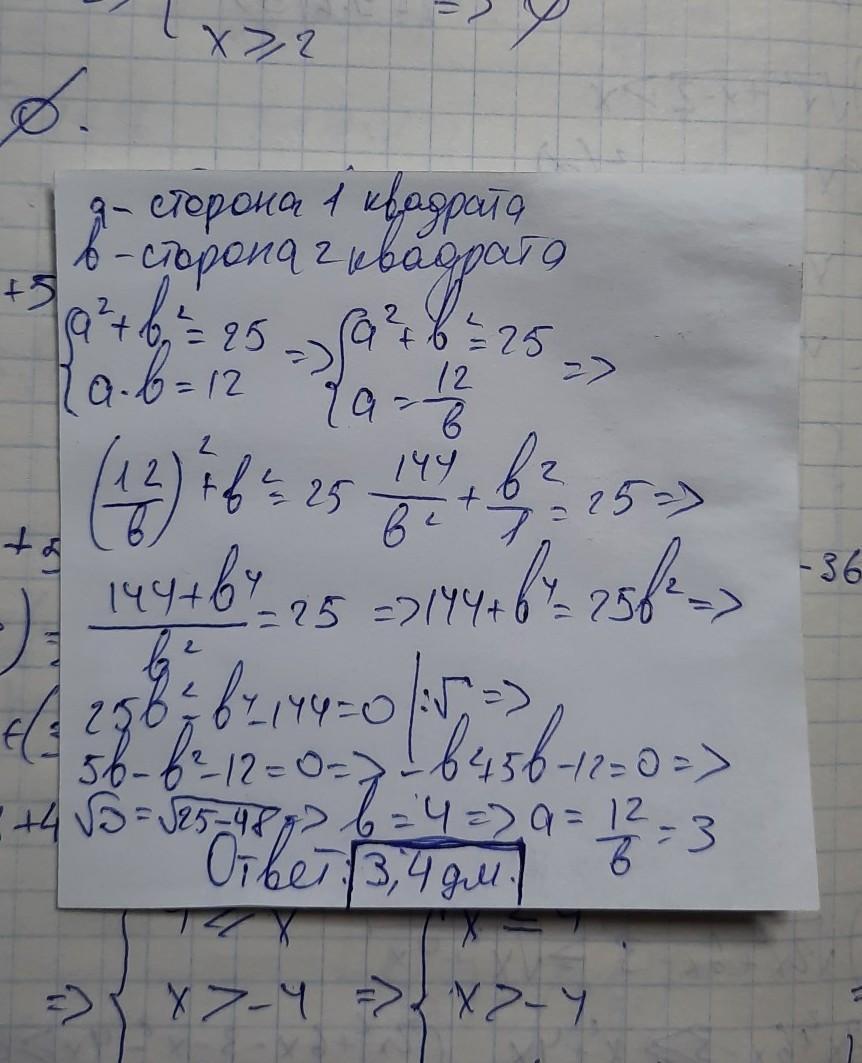 => ∅
x ≥ 2
∅.
a - сторона 1 квадрата
b - сторона 2 квадрата
+5
{a² + b² = 25 => {a² + b² = 25 =>
{a · b = 12 {a = 12/b
(12/b)² + b² = 25 144/b² + b²/1 = 25 =>
+5
-36
(144 + b⁴)/b² = 25 => 144 + b⁴ = 25b² =>
) =
25b² - b⁴ - 144 = 0 | :√ =>
5b - b² - 12 = 0 => -b² + 5b - 12 = 0 =>
+4
√D = √25-48 => b = 4 => a = 12/b = 3
Ответ: 3,4 дм.
=> { x > -4 => { x > -4